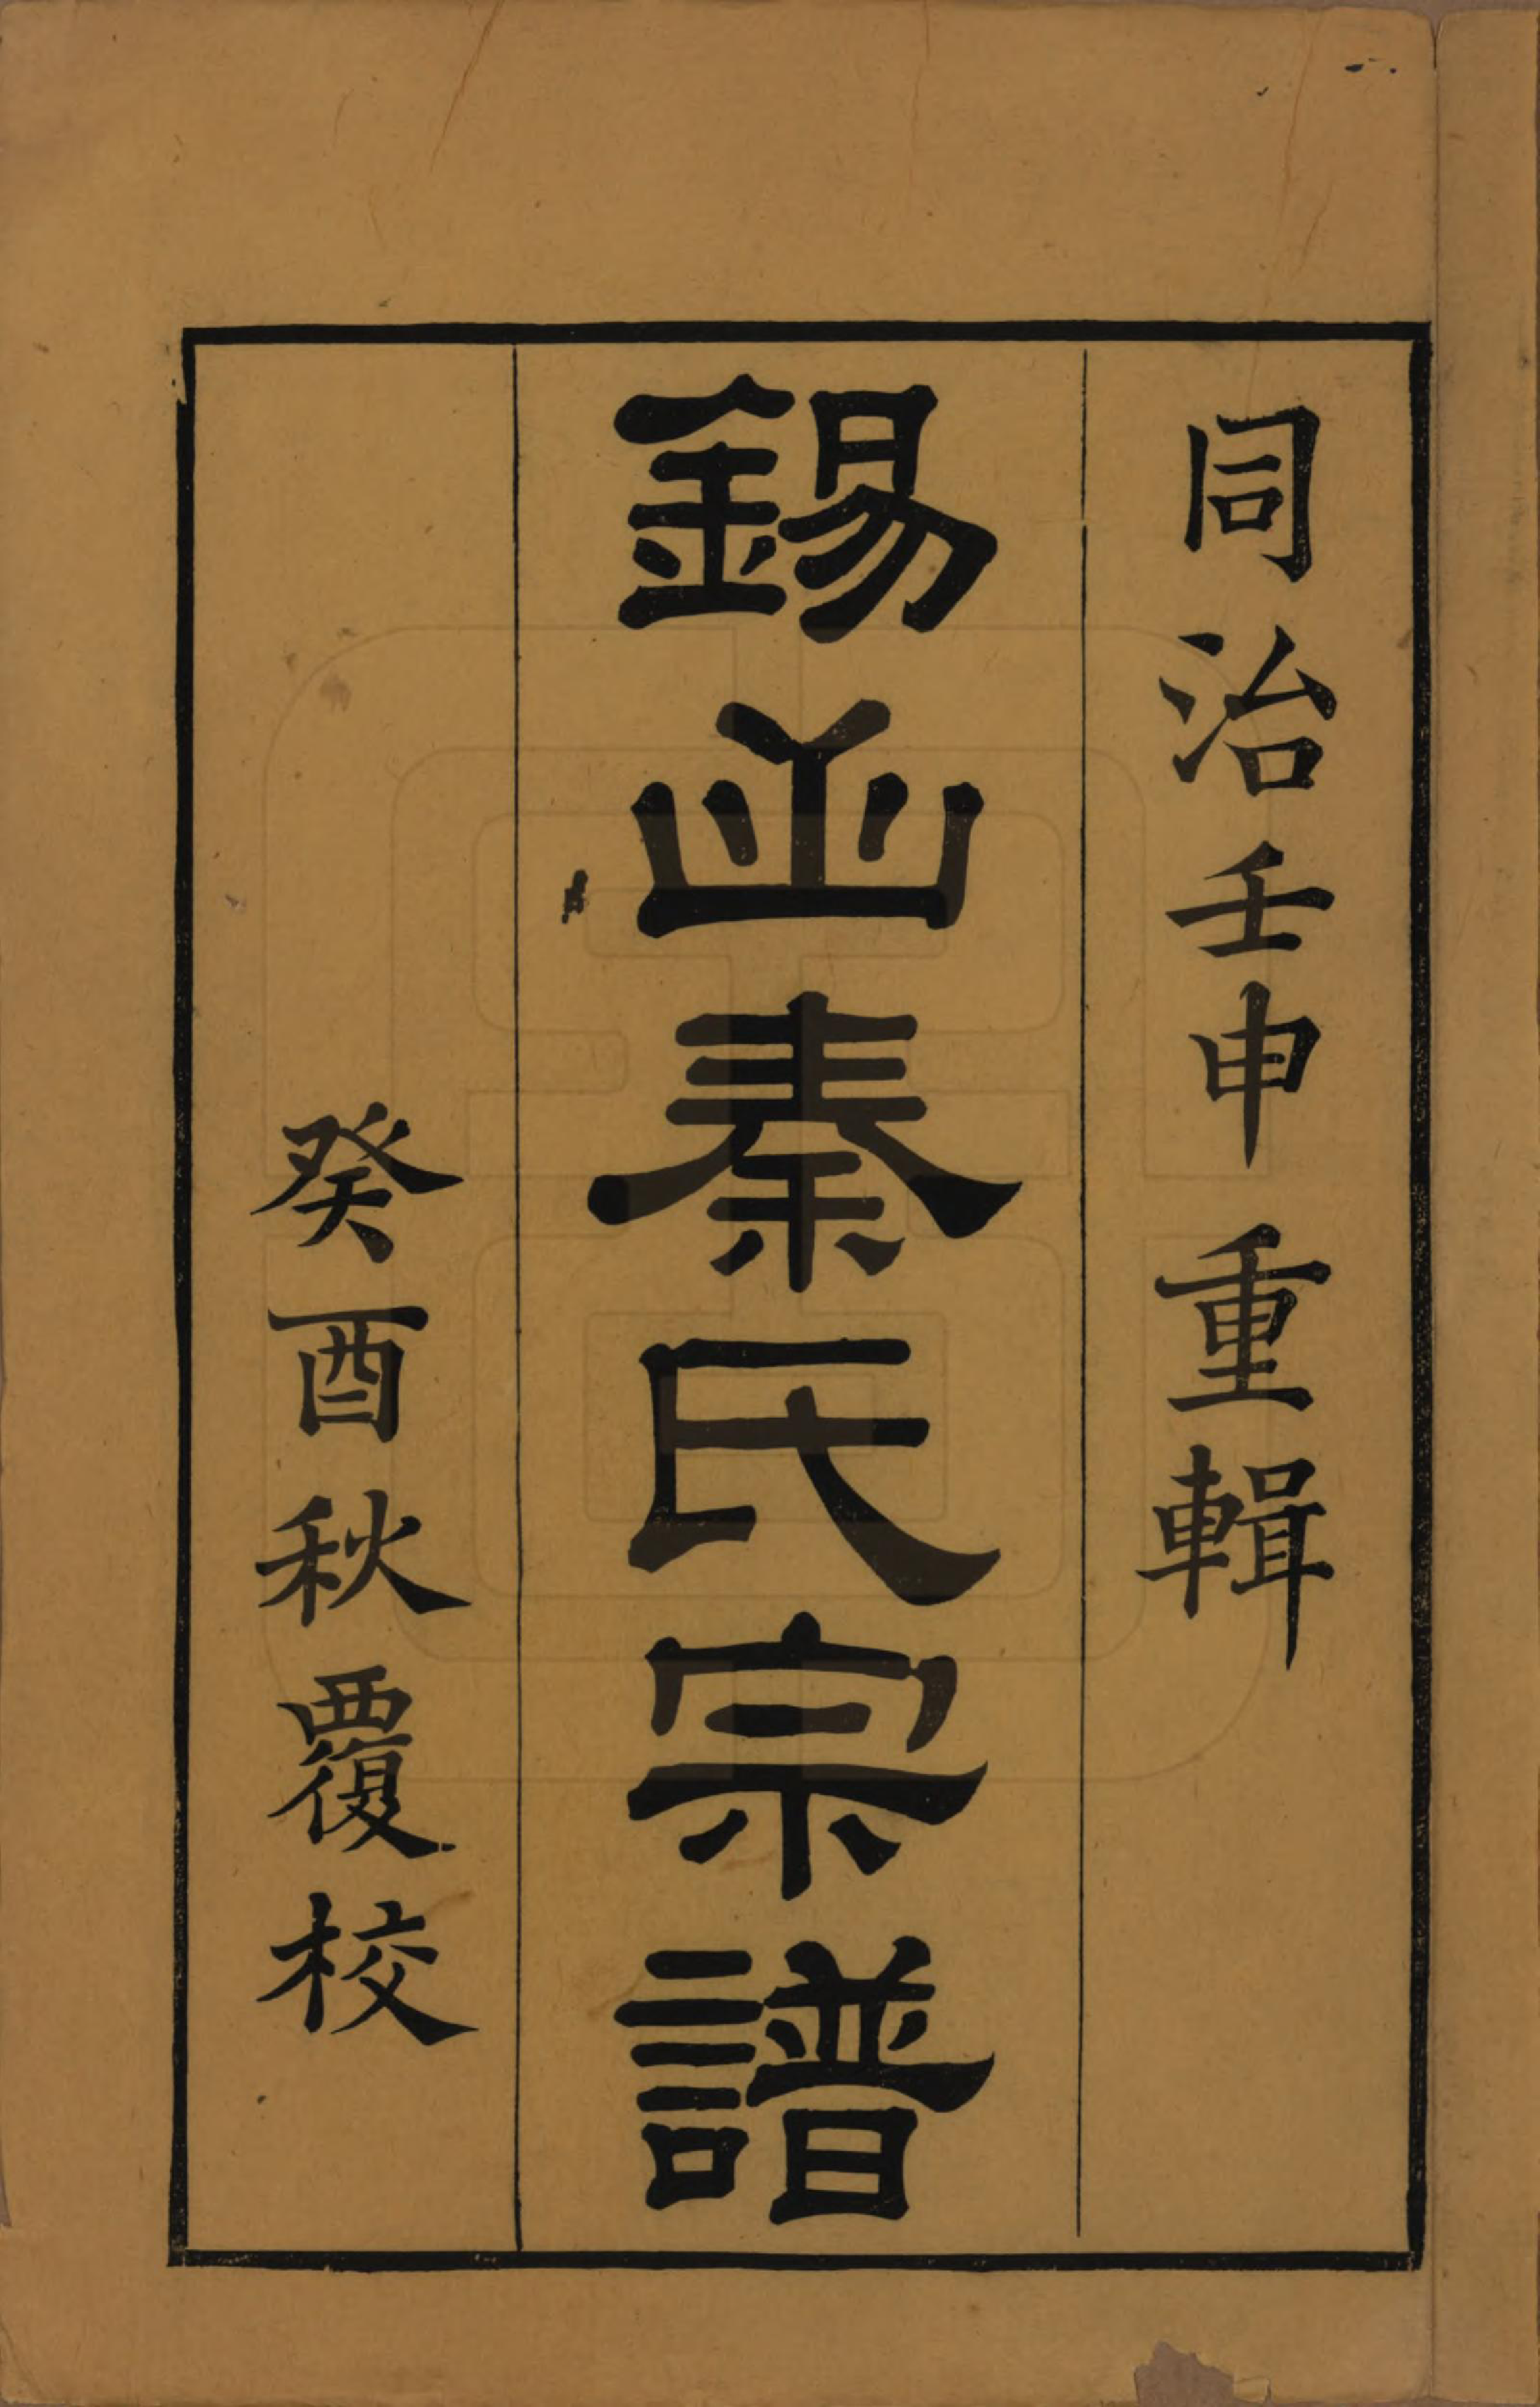 同治壬申重輯
錫山秦氏宗譜
癸酉秋覆校